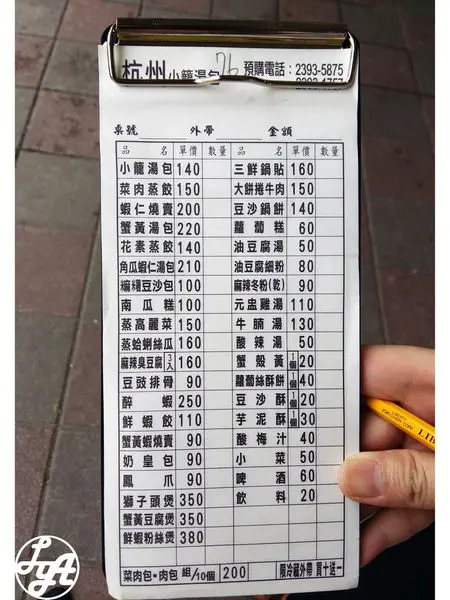 杭州小籠湯包 26 預購電話：2393-5875
桌號 外帶 金額
品名 單價 數量 品名 單價 數量
小籠湯包 140 三鮮鍋貼 160
菜肉蒸餃 150 大餅捲牛肉 150
蝦仁燒賣 200 豆沙鍋餅 140
蟹黃湯包 220 蘿蔔糕 60
花素蒸餃 140 油豆腐湯 50
角瓜蝦仁湯包 210 油豆腐細粉 80
編糰豆沙包 100 麻辣冬粉(乾) 90
南瓜糕 100 元盅雞湯 110
蒸高麗菜 150 牛腩湯 130
蒸蛤蜊絲瓜 160 酸辣湯 50
麻辣臭豆腐 3入 160 蟹殼黃 1個 20
豆豉排骨 90 蘿蔔絲酥餅 1個 40
醉蝦 250 豆沙酥 1個 20
鮮蝦餃 110 芋泥酥 1個 30
蟹黃蝦燒賣 90 酸梅汁 40
奶皇包 90 小菜 50
鳳爪 90 啤酒 60
獅子頭煲 350 飲料 20
蟹黃豆腐煲 350
鮮蝦粉絲煲 380
菜肉包・肉包 組/10個 200 限冷藏外帶 買十送一
LIB